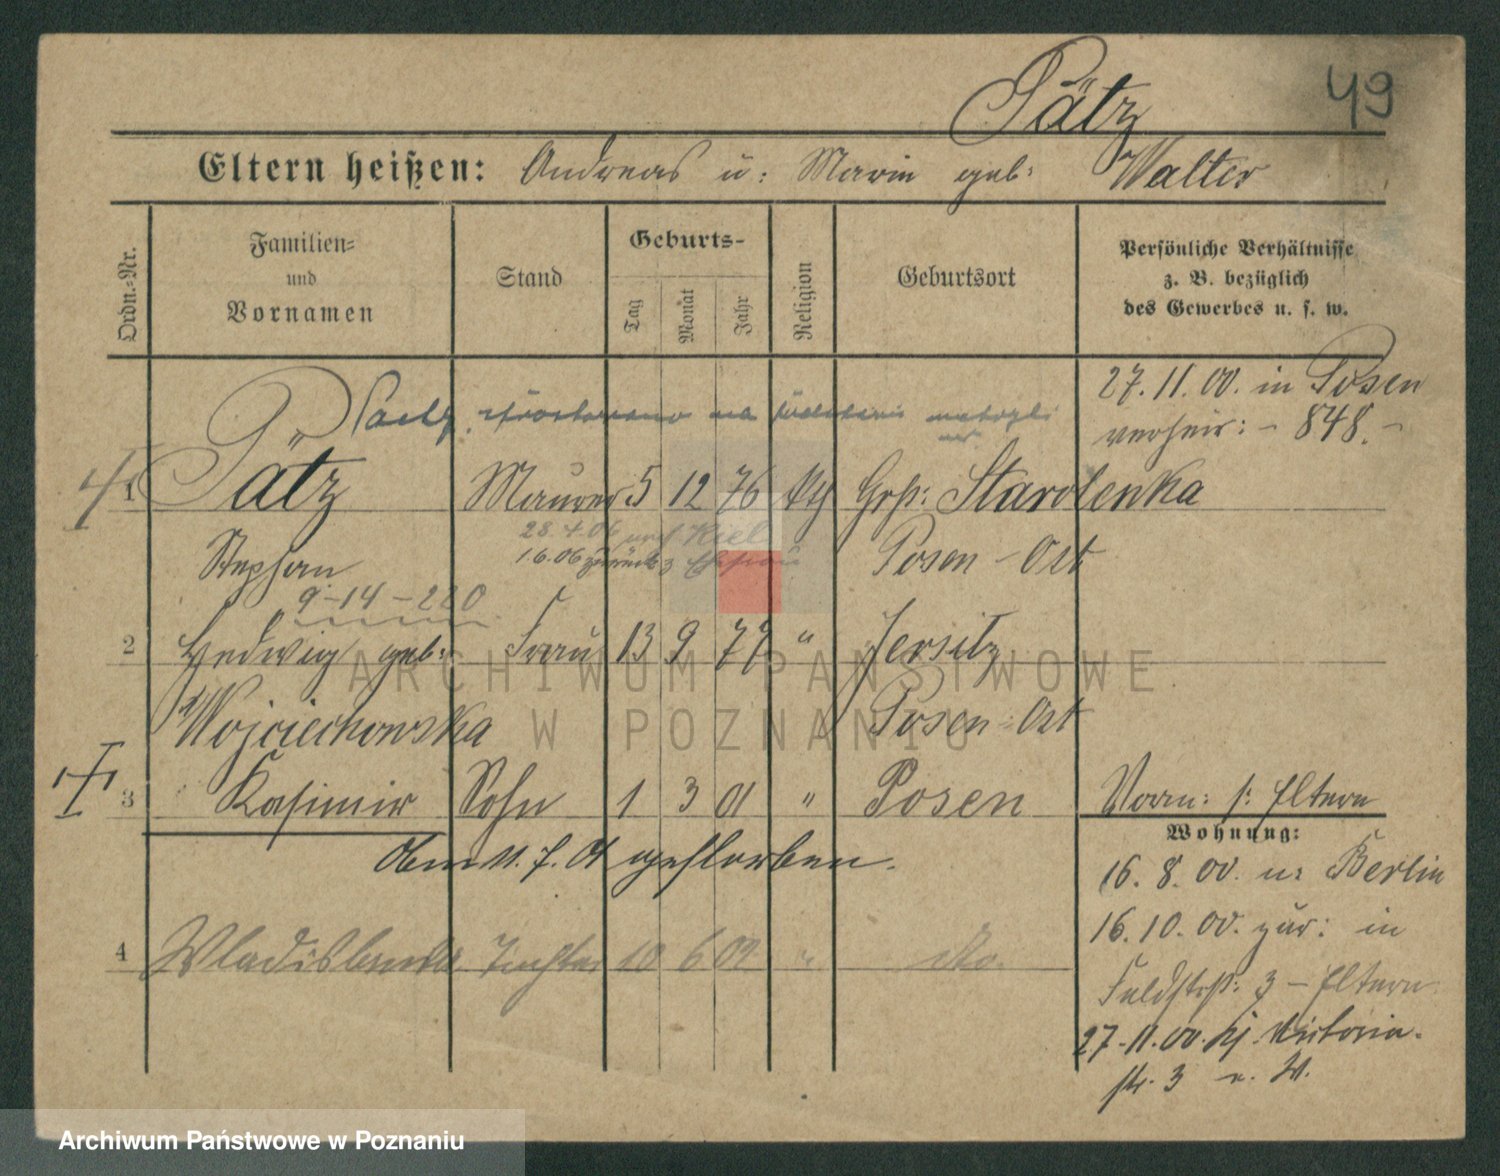 49
Pätz
Eltern heißen: Andreas u: Marie geb: Walter
Ordn.-Nr.
Familien-
und
Vornamen
Stand
Geburts-
Tag
Monat
Jahr
Religion
Geburtsort
Persönliche Verhältnisse
z. B. bezüglich
des Gewerbes u. s. w.
27. 11. 00. in Posen
verheir: - 848. -
Paetz, sprostowano na
1 Pätz Maurer 5 12 76 kth Grß: Starolenka
Stephan
28.4.06 nach Kiel
1.6.06 zurück z Ehefrau
Posen - Ost
9-14-220
2 Hedwig geb: Frau 13 9 77 " Jersitz
Wojciechowska Posen-Ost
3 Kasimir Sohn 1 3 01 " Posen
Vorm: s: Eltern
Wohnung:
am 11. 7. 01 gestorben.
16. 8. 00. n: Berlin
16. 10. 00. zur: in
4 Wladislawa Tochter 10 6 02 " do.
Feldstr: 3 - Eltern
27. 11. 00. Victoria-
str. 3 v. W.
ARCHIWUM PAŃSTWOWE
W POZNANIU
Archiwum Państwowe w Poznaniu